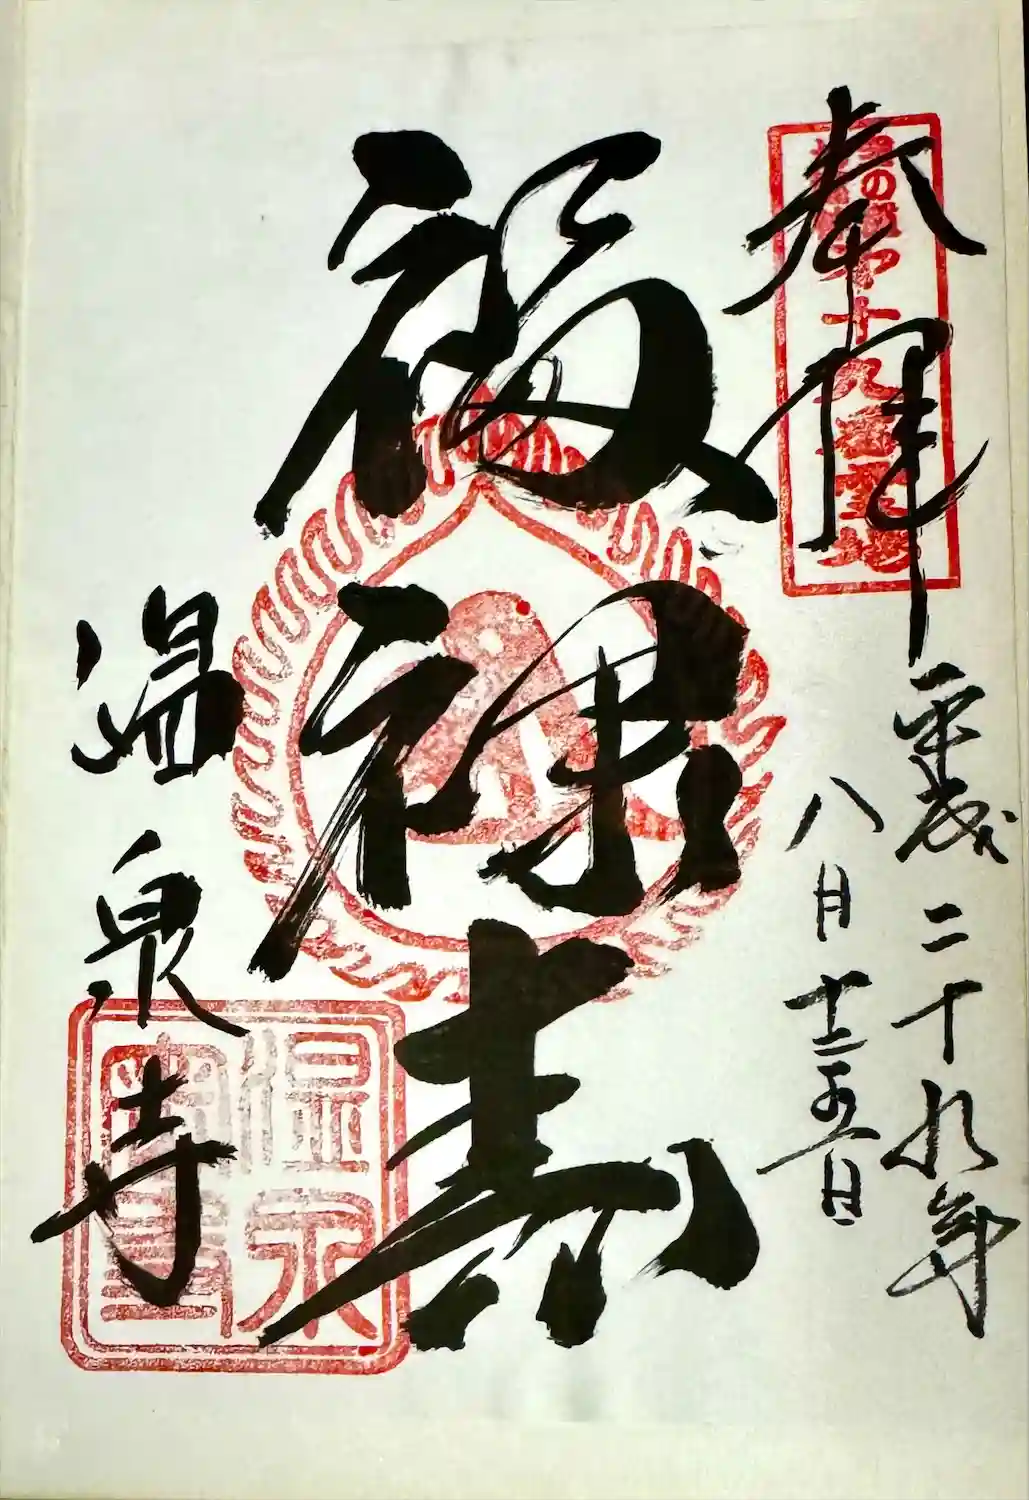 奉拝
十九番霊場
平成二十九年
八月
日
福禄寿
温泉寺
温泉